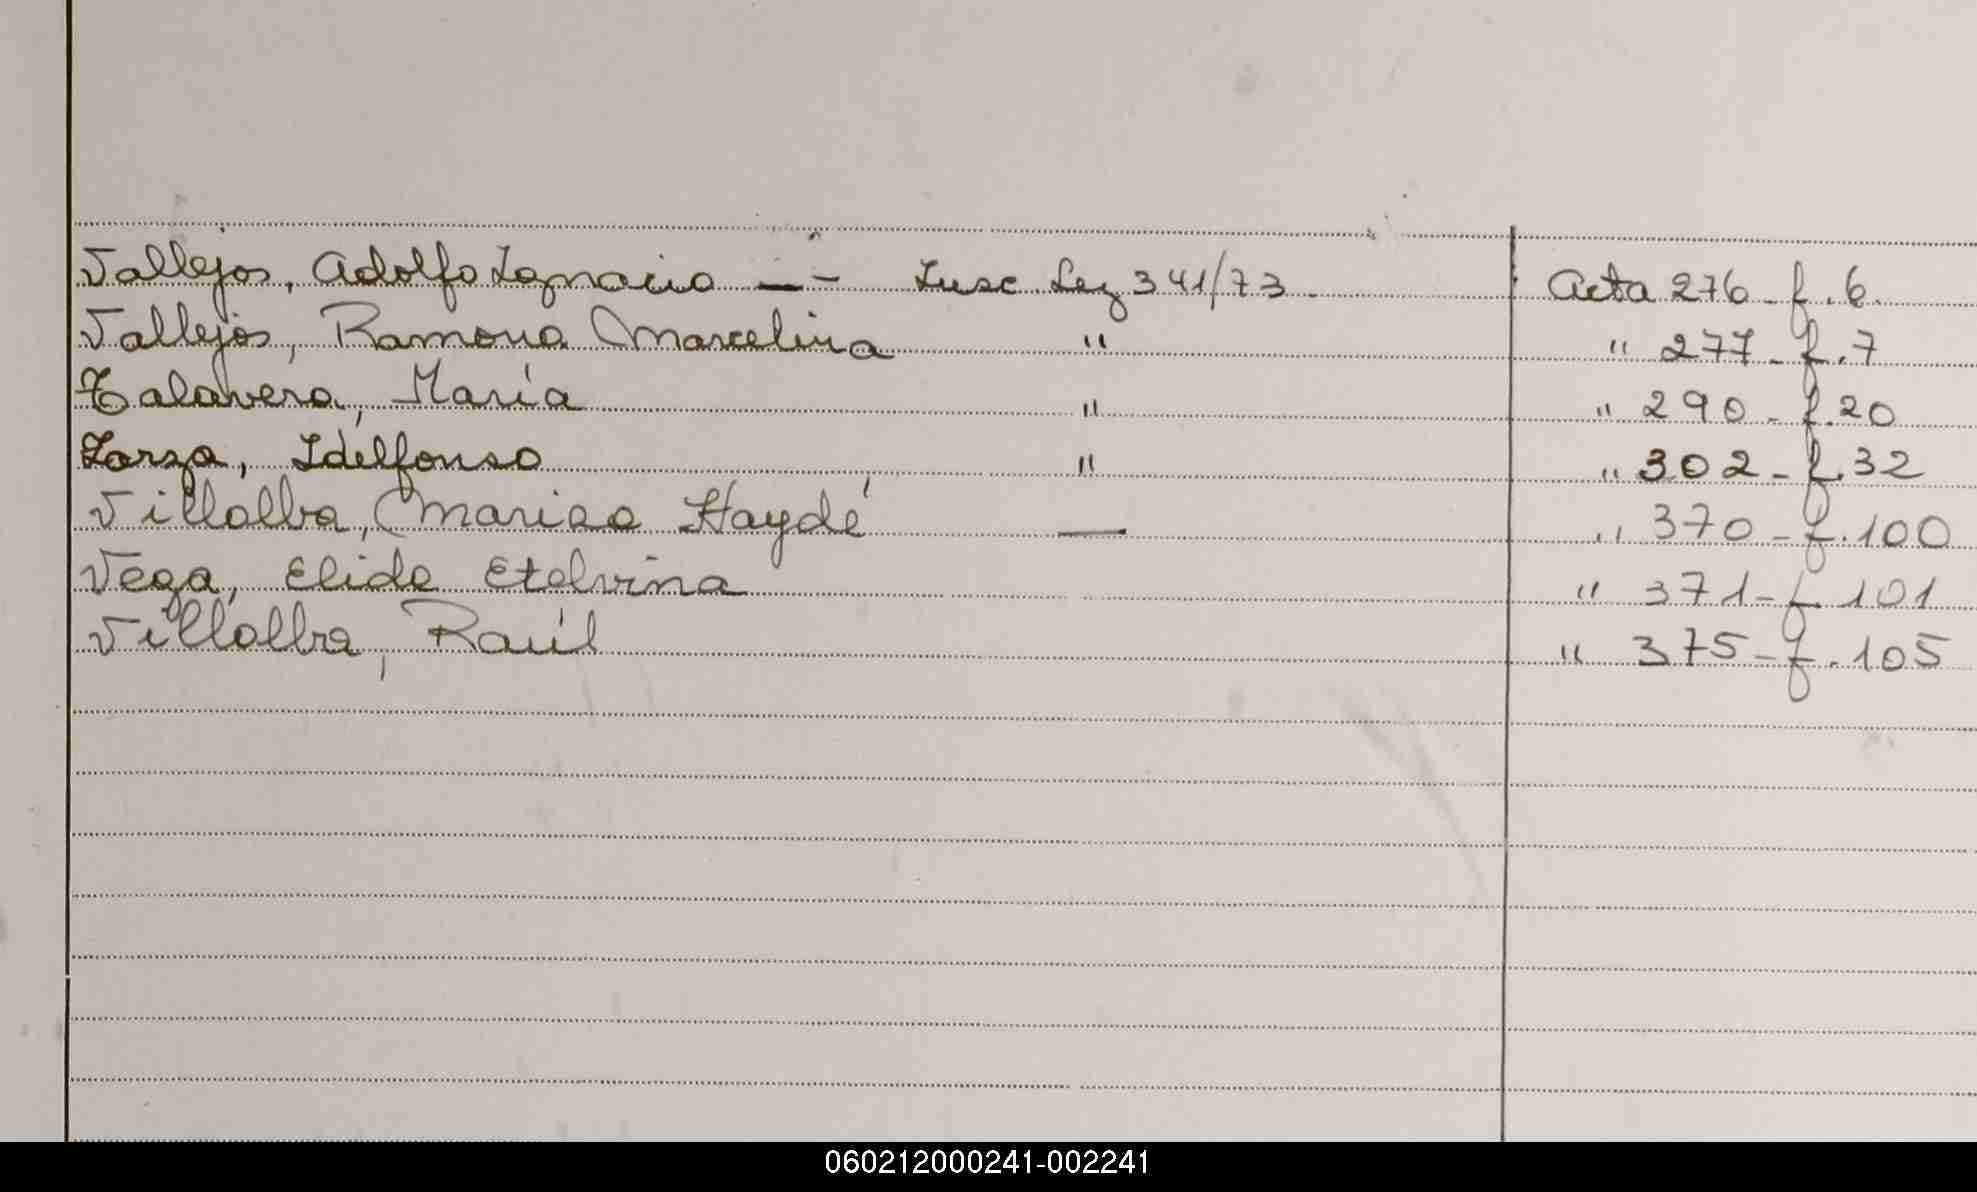 Vallejos, Adolfo Ignacio — - Insc Ley 341/73 Acta 276 - f. 6.
Vallejos, Ramona Marcelina " " 277 - f. 7
Talavera, María " " 290 - f. 20
Zarza, Idelfonso " " 302 - f. 32
Villalba, Marisa Haydé — " 370 - f. 100
Vega, Elida Etelvina " 371 - f 101
Villalba, Raúl " 375 - f. 105
060212000241-002241